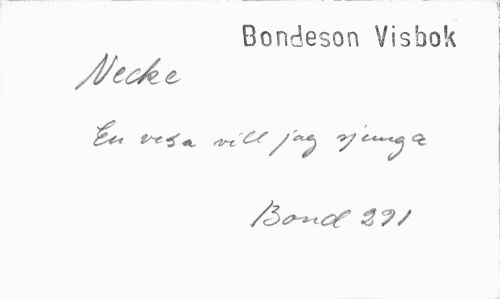 Bondeson Visbok
Necke
En visa vill jag sjunga
Bond 291